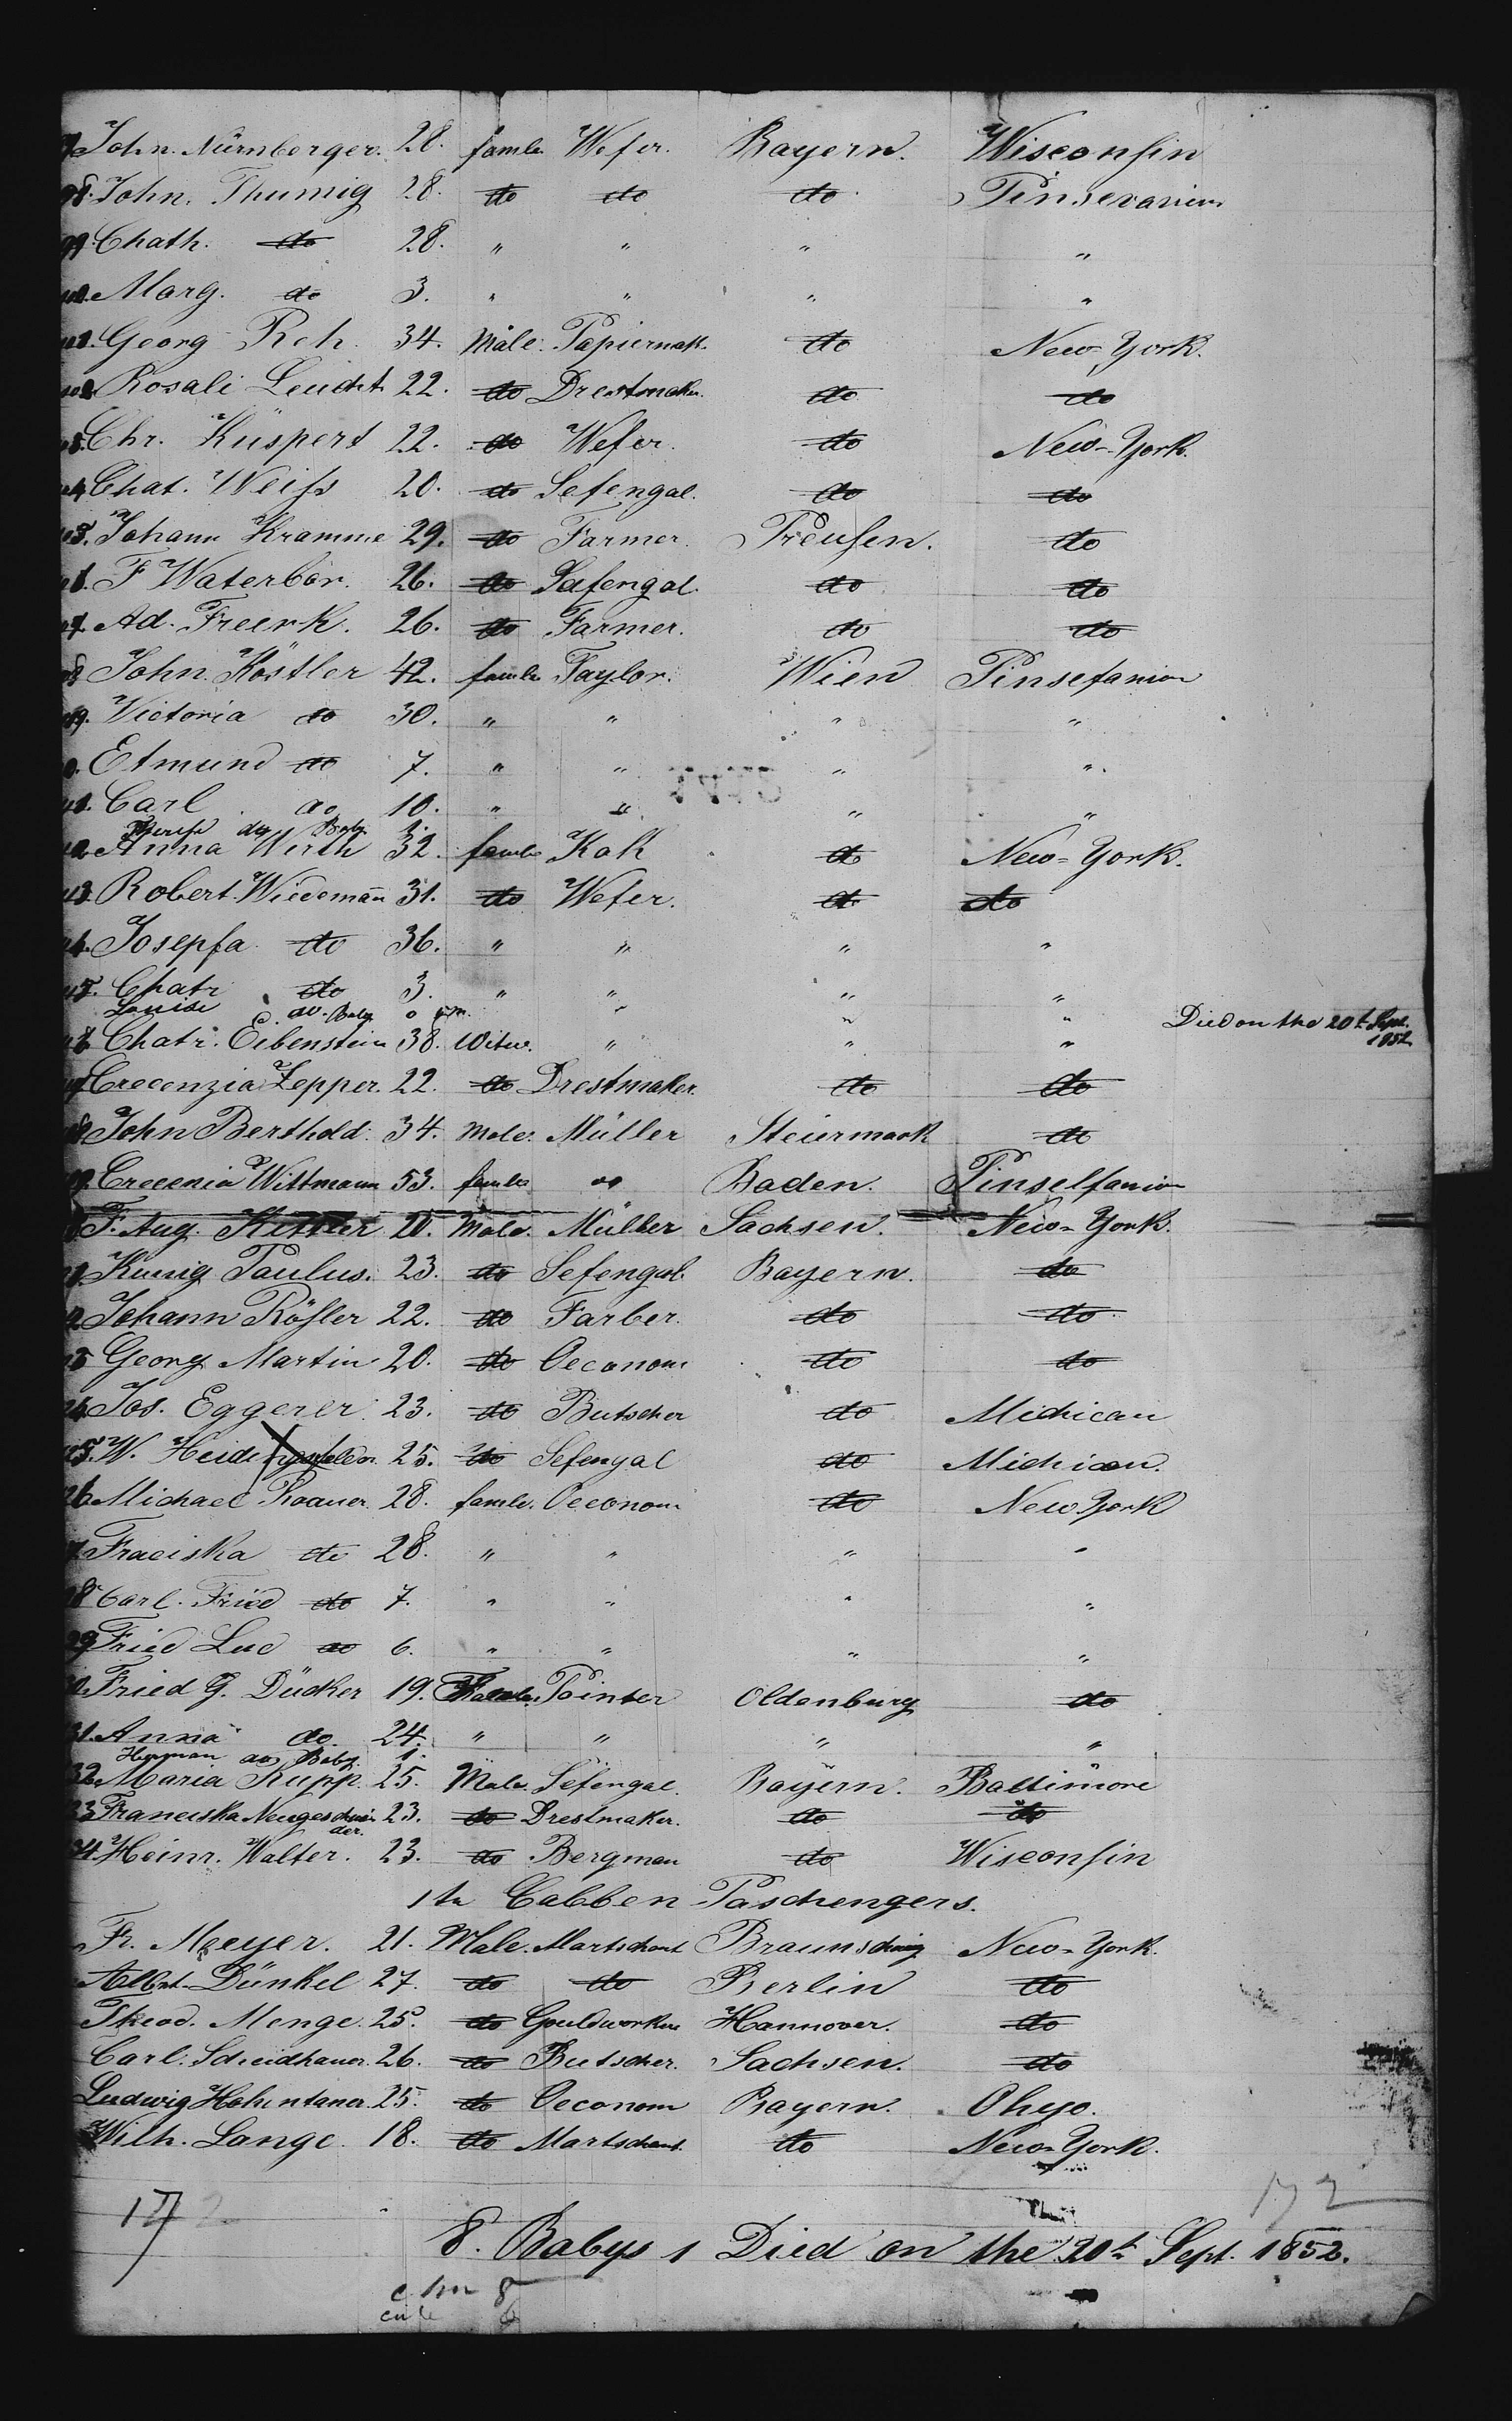 John. Nürnberger. 28. famle Wefer. Bayern. Wisconsin
98. John. Thumig 28. do do do Pinsevanien
99. Chath. do 28. " " " "
Marg. do 3. " " " "
Georg Reh. 34. Male. Papiermak. do New-York.
Rosali Leucht 22. do Drestmaker. do do
Chr. Küspert 22. do Wefer. do New-York.
Chat. Weiss 20. do Sefengal. do do
Johann Kramme 29. do Farmer. Preusen. do
F Waterbör. 26. do Sefengal. do do
Ad. Freerk. 26. do Farmer. do do
John. Köstler 42. famle Taylor. Wien Pinsefanion
Victoria do 30. " " " "
Etmund do 7. " " " "
Carl do 10. " " " "
do Baby 1.
Anna Wirth 32. famle Kok do New-York.
13. Robert. Wiedeman̄ 31. do Wefer. do do
Josepfa do 36. " " " "
Chatr do 3. " " " "
Louise do. Baby 0 " " " Died on the 20t Sept. 1852
Chatr. Eibenstein 38. Witw. " " "
Crecenzia Zepper. 22. do Drestmaker. do do
John Berthold. 34. Male. Müller Steiermark do
Crecenia Wittmann 53. famle do Baden. Pinselfanion
F. Aug. Kettler 20. Male. Müller Sachsen. New-York.
Kunig Paulus. 23. do Sefengal. Bayern. do
Johann Rösler 22. do Farber. do do
Georg Martin 20. do Oeconom do do
Jos. Eggerer 23. do Butscher do Michican
W. 25. do Sefengal do Michican.
26 Michael Roauer 28. famle. Oeconom do New-York
Fraciska do 28. " " " "
28 Carl. Fried do 7. " " " "
29 Fried Lud do 6. " " " "
Fried G. Dücker 19. Pointer Oldenburg do
31. Anna do. 24. " " " "
Herman do Baby. 1.
32. Maria Rupp. 25. Male. Sefengal. Bayern. Baltimore
33 Franciska Neugeschneider. 23. do Drestmaker. do do
34. Heinr. Walter. 23. do Bergman do Wisconsin
1te Cabben Paschengers.
Fr. Meeyer. 21. Male. Martschant Braunschwig New-York.
Albert Dünkel 27. do do Berlin do
Theod. Menge. 25. do Gouldworker Hannover. do
Carl. Scheidhauer. 26. do Butscher. Sachsen. do
Ludwig Hohentaner. 25. do Oeconom Bayern. Ohyo.
Wilh. Lange. 18. do Martschant. do New-York.
172
8. Babys 1 Died on the 20t Sept. 1852.